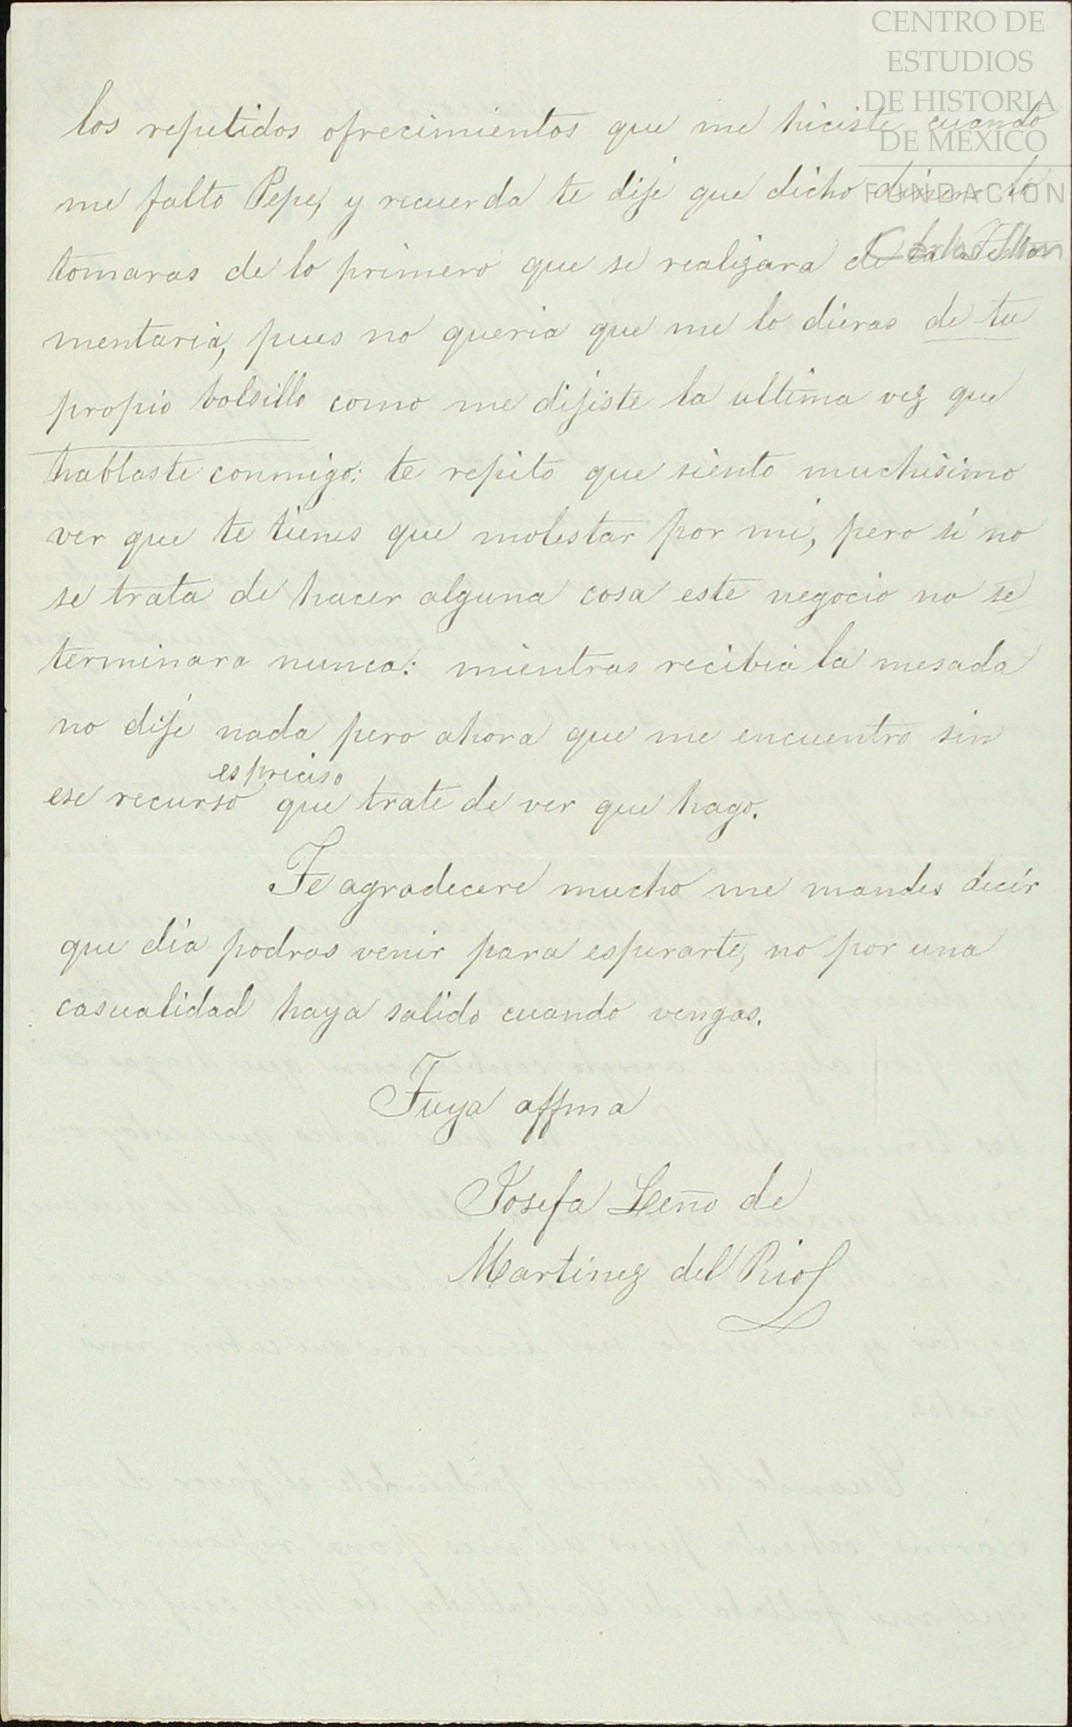 CENTRO DE
ESTUDIOS
DE HISTORIA
DE MÉXICO
FUNDACIÓN
los repetidos ofrecimientos que me hiciste cuando
me falto Pepe, y recuerda te dije que dicho dinero lo
tomaras de lo primero que se realizara de la Testa-
mentaria, pues no queria que me lo dieras de tu
propio bolsillo como me dijiste la ultima vez que
hablaste conmigo: te repito que siento muchisimo
ver que te tienes que molestar por mi, pero si no
se trata de hacer alguna cosa este negocio no se
terminara nunca: mientras recibia la mesada
no dije nada pero ahora que me encuentro sin
es preciso
ese recurso que trate de ver que hago.
Te agradecere mucho me mandes decir
que dia podras venir para esperarte, no por una
casualidad haya salido cuando vengas.
Tuya affma
Josefa Leño de
Martinez del Rio